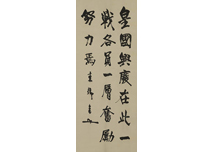 皇國興廢在此一
戰各員一層奮勵
努力焉